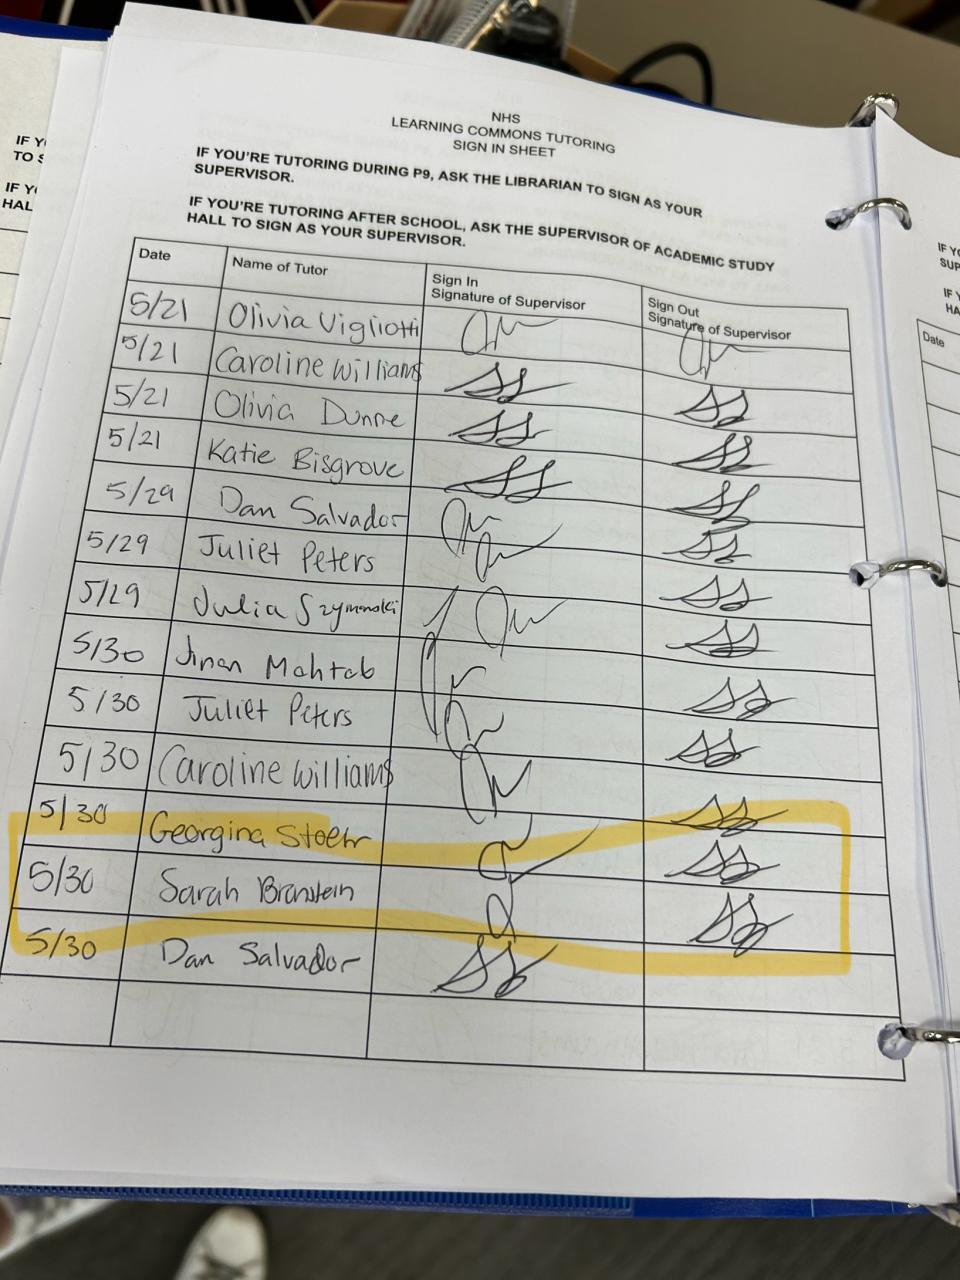 NHS
LEARNING COMMONS TUTORING
SIGN IN SHEET
IF YOU'RE TUTORING DURING P9, ASK THE LIBRARIAN TO SIGN AS YOUR
SUPERVISOR.
IF YOU'RE TUTORING AFTER SCHOOL, ASK THE SUPERVISOR OF ACADEMIC STUDY
HALL TO SIGN AS YOUR SUPERVISOR.
Date Name of Tutor Sign In Signature of Supervisor Sign Out Signature of Supervisor
5/21 Olivia Vigliotti
5/21 Caroline Williams
5/21 Olivia Dunne
5/21 Katie Bisgrove
5/29 Dan Salvador
5/29 Juliet Peters
5/29 Julia Szymanski
5/30 Jinan Mahtab
5/30 Juliet Peters
5/30 Caroline Williams
5/30 Georgina Stoehr
5/30 Sarah
5/30 Dan Salvador
IF Y
TO S
IF Y
HAL
IF Y
SUP
IF Y
HA
Date